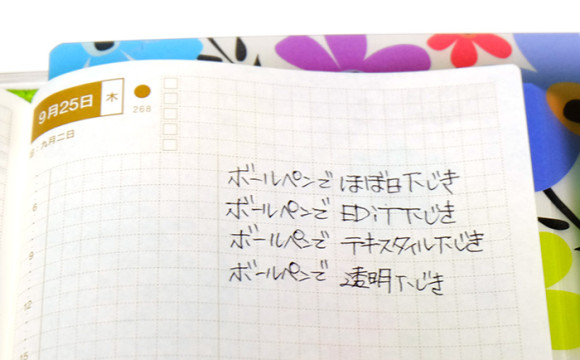 9月25日 木
268
九月二日
6
ボールペンで ほぼ日下じき
ボールペンで EDiT下じき
ボールペンで テキスタイル下じき
9
ボールペンで 透明下じき
12
15